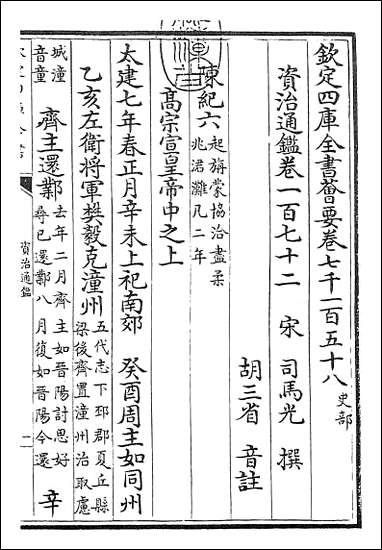 欽定四庫全書薈要卷七千一百五十八 史部
資治通鑑卷一百七十二 宋 司馬光 撰
胡三省 音註
陳紀六 起旃蒙協洽盡柔兆涒灘凡二年
高宗宣皇帝中之上
太建七年春正月辛未上祀南郊 癸酉周主如同州
乙亥左衛將軍樊毅克潼州 五代志下邳郡夏丘縣梁後齊置潼州治取慮
城潼音童 齊主還鄴 去年二月齊主如晉陽討思好尋已還鄴八月復如晉陽今還 辛
資治通鑑